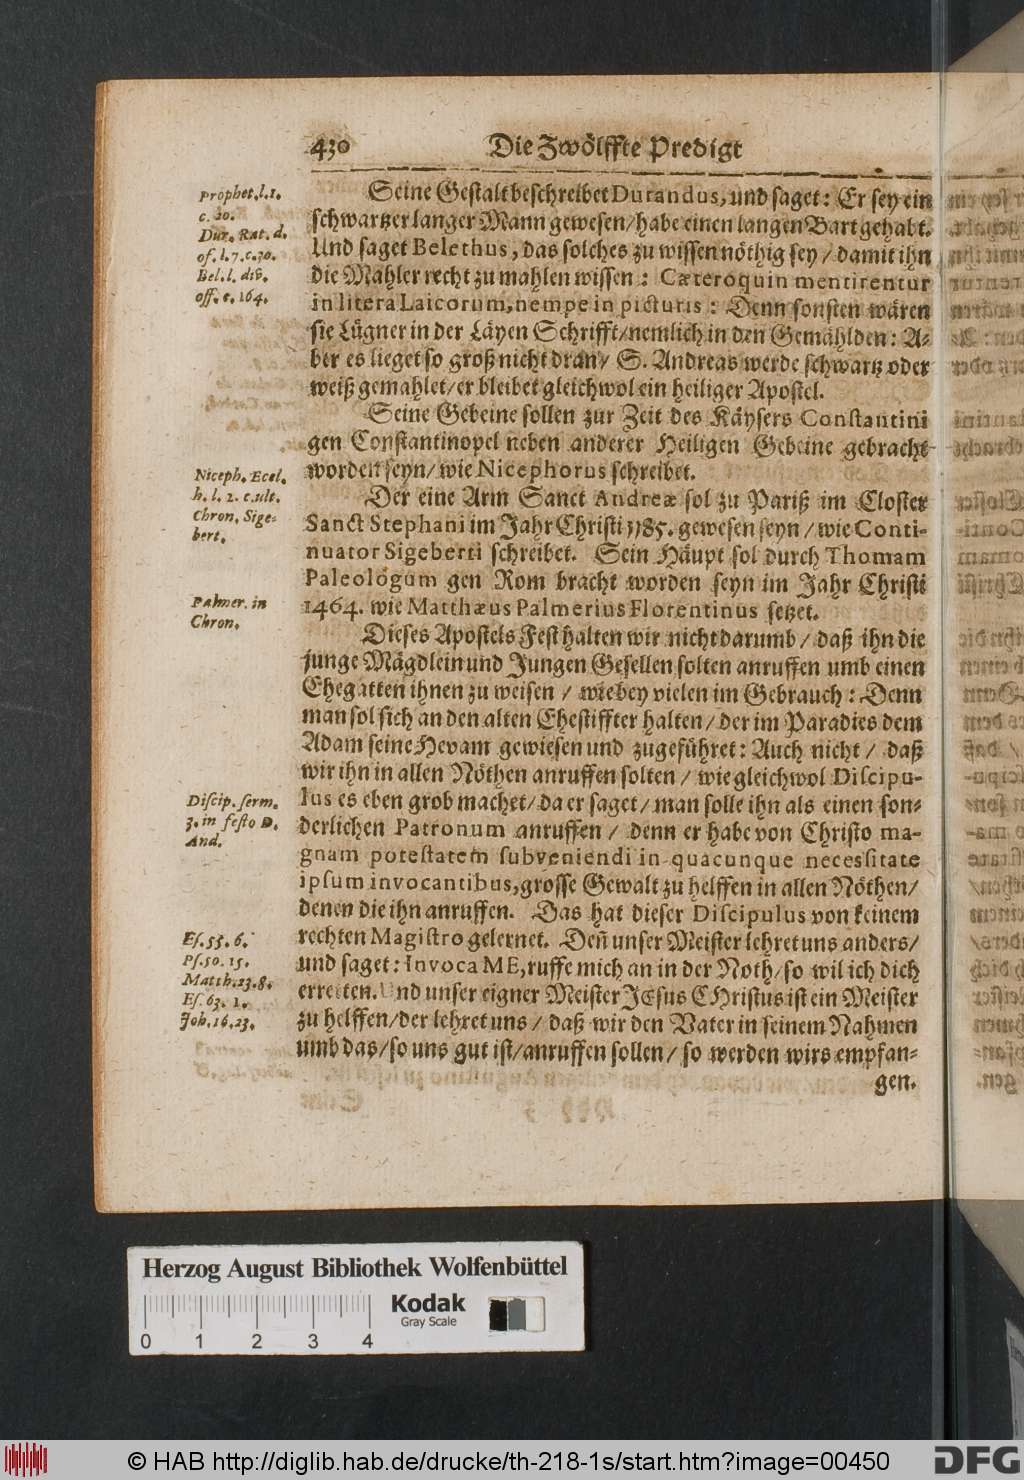 430 Die Zwölffte Predigt
Seine Gestalt beschreibet Durandus, und saget: Er sey ein
schwartzer langer Mann gewesen/ habe einen langen Bart gehabt.
Und saget Belethus, das solches zu wissen nöthig sey / damit ihn
die Mahler recht zu mahlen wissen: Cæteroquin mentirentur
in litera Laicorum, nempe in picturis: Denn sonsten wären
sie Lügner in der Läyen Schrifft/ nemlich in den Gemählden: A-
ber es lieget so groß nicht dran/ S. Andreas werde schwartz oder
weiß gemahlet/ er bleibet gleichwol ein heiliger Apostel.
Seine Gebeine sollen zur Zeit des Käysers Constantini
gen Constantinopel neben anderer Heiligen Gebeine gebracht
worden seyn/ wie Nicephorus schreibet.
Der eine Arm Sanct Andreæ sol zu Pariß im Closter
Sanct Stephani im Jahr Christi 1185. gewesen seyn / wie Conti-
nuator Sigeberti schreibet. Sein Häupt sol durch Thomam
Paleologum gen Rom bracht worden seyn im Jahr Christi
1464. wie Matthæus Palmerius Florentinus setzet.
Dieses Apostels Fest halten wir nicht darumb / daß ihn die
junge Mägdlein und Jungen Gesellen solten anruffen umb einen
Ehegatten ihnen zu weisen / wie bey vielen im Gebrauch: Denn
man sol sich an den alten Ehestiffter halten/ der im Paradies dem
Adam seine Hevam gewiesen und zugeführet: Auch nicht / daß
wir ihn in allen Nöthen anruffen solten / wie gleichwol Discipu-
lus es eben grob machet/ da er saget/ man solle ihn als einen son-
derlichen Patronum anruffen / denn er habe von Christo ma-
gnam potestatem subveniendi in quacunque necessitate
ipsum invocantibus, grosse Gewalt zu helffen in allen Nöthen/
denen die ihn anruffen. Das hat dieser Discipulus von keinem
rechten Magistro gelernet. Deñ unser Meister lehret uns anders/
und saget: Invoca ME, ruffe mich an in der Noth/ so wil ich dich
erretten. Und unser eigner Meister JEsus CHristus ist ein Meister
zu helffen/ der lehret uns / daß wir den Vater in seinem Nahmen
umb das/ so uns gut ist/ anruffen sollen/ so werden wirs empfan-
gen.
Prophet. l. 1.
c. 20.
Dur. Rat. d.
of. l. 7. c. 30.
Bel. l. diß.
off. c. 164.
Niceph. Eccl.
h. l. 2. c. ult.
Chron. Sige-
bert.
Palmer. in
Chron.
Discip. serm.
3. in festo D.
And.
Es. 55. 6.
Ps. 50. 15.
Matth. 23. 8.
Es. 63. 1.
Joh. 16. 23.
Herzog August Bibliothek Wolfenbüttel
Kodak
Gray Scale
0 1 2 3 4
© HAB http://diglib.hab.de/drucke/th-218-1s/start.htm?image=00450
DFG